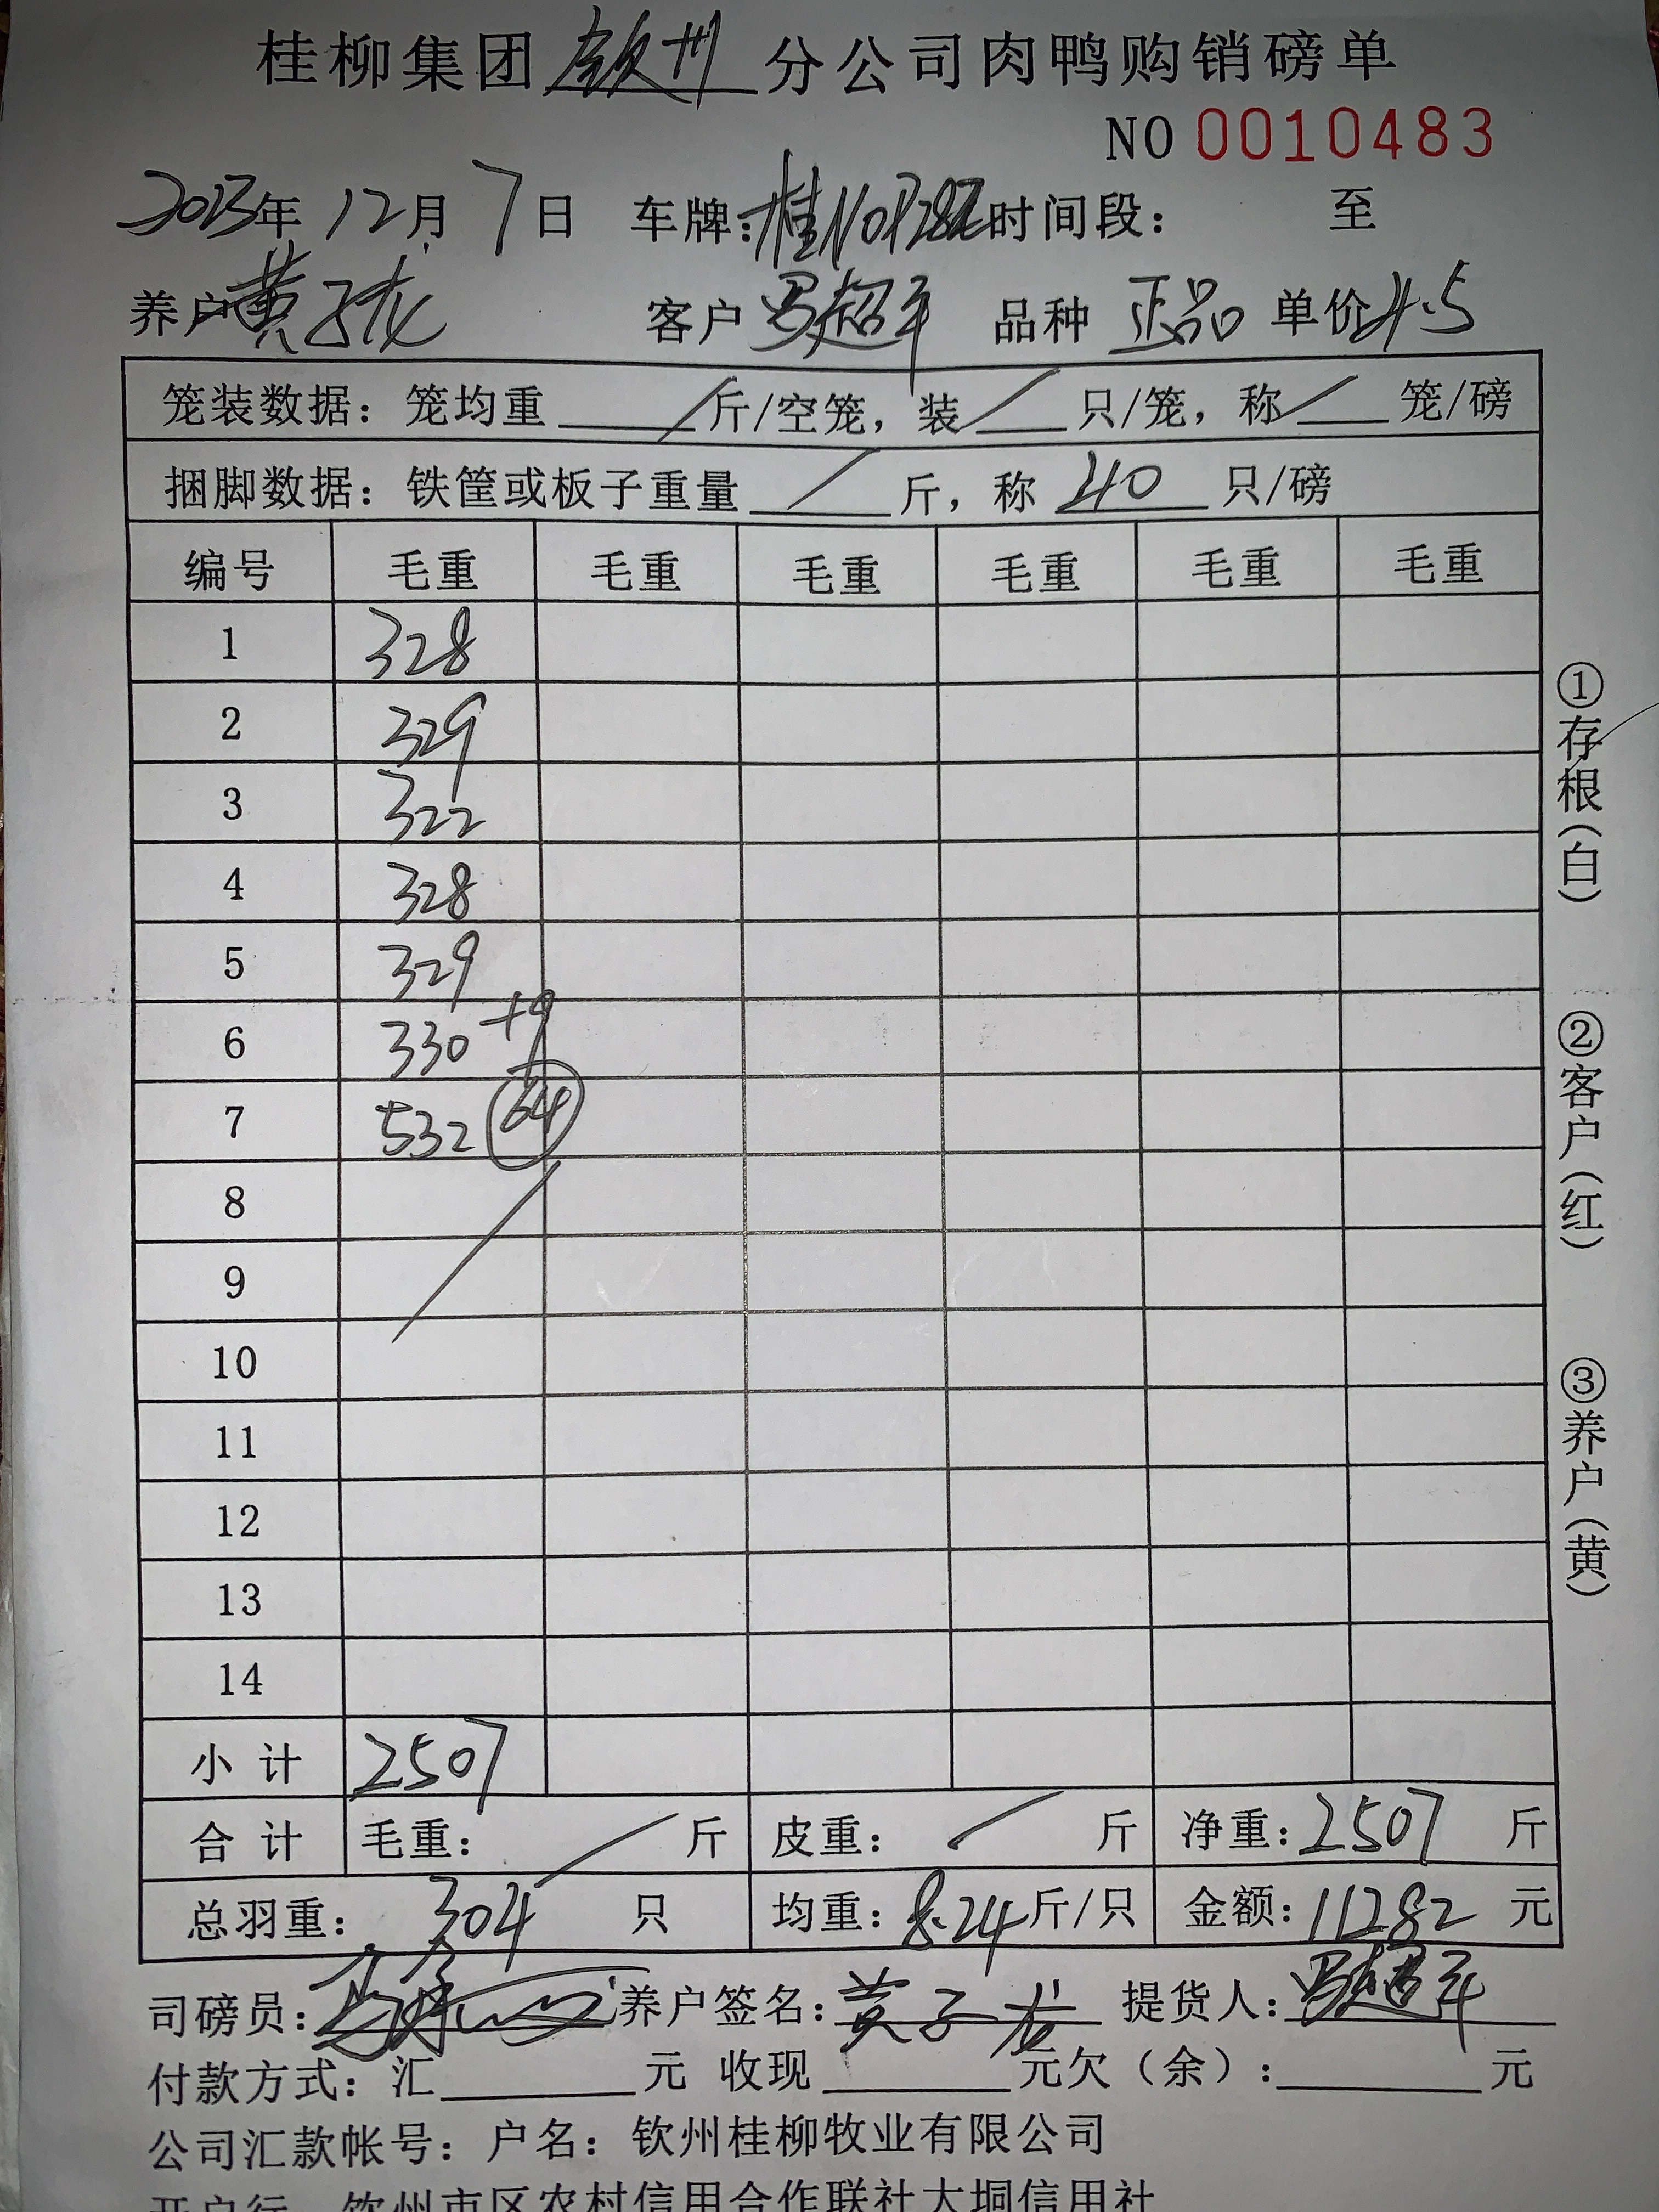 桂柳集团钦州分公司肉鸭购销磅单
NO 0010483
2023年12月7日 车牌：桂N 时间段： 至
养户 黄子龙 客户 罗超平 品种 正品 单价 4.5
笼装数据：笼均重 / 斤/空笼，装 / 只/笼，称 / 笼/磅
捆脚数据：铁筐或板子重量 / 斤，称 40 只/磅
编号 毛重 毛重 毛重 毛重 毛重 毛重
1 328
2 329
3 322
4 328
5 329
6 330 +9
7 532 64
8
9
10
11
12
13
14
小计 2507
合计 毛重： / 斤 皮重： / 斤 净重：2507 斤
总羽重：304 只 均重：8.24 斤/只 金额：11282 元
司磅员： 养户签名：黄子龙 提货人：罗超平
付款方式：汇 元 收现 元欠（余）： 元
公司汇款帐号：户名：钦州桂柳牧业有限公司
开户行 钦州市区农村信用合作联社大垌信用社
①存根（白）
②客户（红）
③养户（黄）